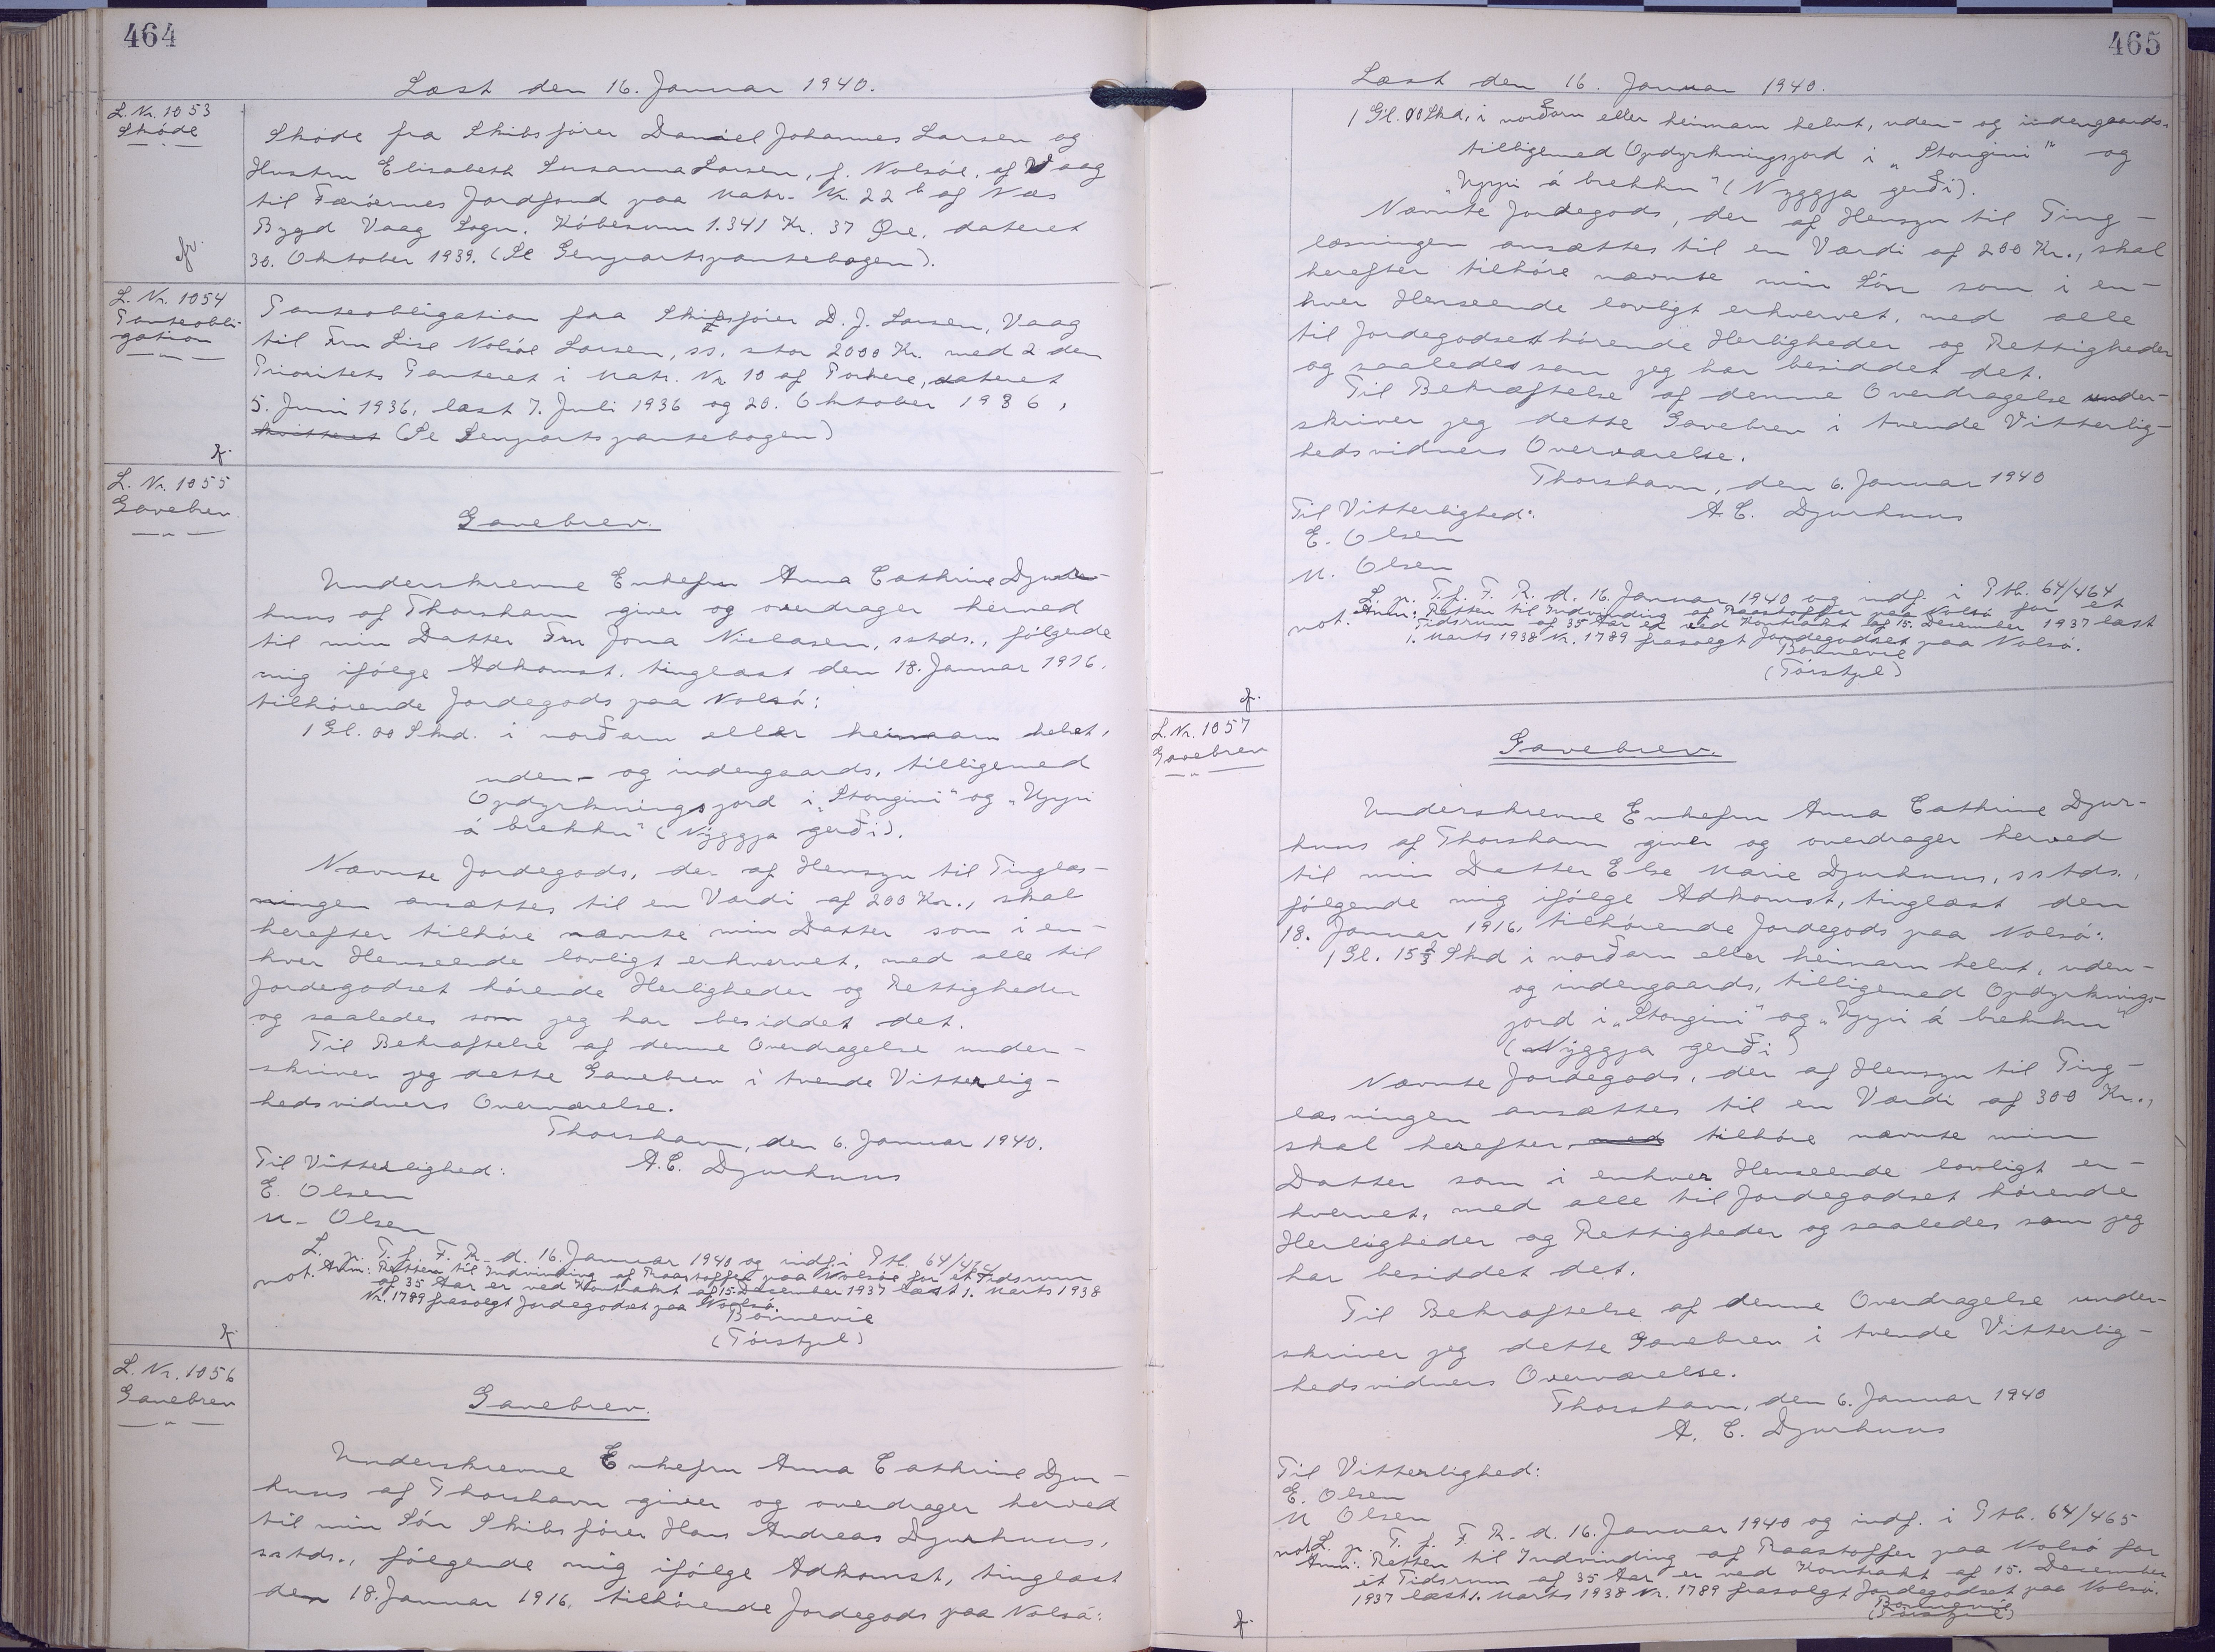 464
Læst den 16. Januar 1940.
L. Nr. 1053
Skøde
Skøde fra Skibsfører Daniel Johannes Larsen og
Hustru Elisabeth Susanna Larsen, f. Nolsøe, af Vaag
til Færøernes Jordfond paa Matr. Nr. 22 b af Næs
Bygd Vaag Sogn. Købesum 1.341 Kr. 37 Øre, dateret
30. Oktober 1939. (Se Genpartspantebogen).
L. Nr. 1054
Panteobli-
gation
Panteobligation fra Skibsfører D. J. Larsen, Vaag
til Fru Lise Nolsøe Larsen, ss. stor 2000 Kr. med 2 den
Prioritets Panteret i Matr. Nr. 10 af Porkere, dateret
5. Juni 1936, læst 7. Juli 1936 og 20. Oktober 1936,
kvitteret (Se Genpartspantebogen)
L. Nr. 1055
Gavebrev
Gavebrev.
Underskrevne Enkefru Anna Cathrine Djur-
huus af Thorshavn giver og overdrager herved
til min Datter Fru Jona Nielasen, sstds., følgende
mig ifølge Adkomst, tinglæst den 18. Januar 1916,
tilhørende Jordegods paa Nolsø:
1 Gl. 00 Skd. i norðaru eller heimaru helvt,
uden- og indengaards, tilligemed
Opdyrkningsjord i „Stongini" og „Uppi
á brekku" (Nýggja gerði).
Nævnte Jordegods, der af Hensyn til Tinglæs-
ningen ansættes til en Værdi af 200 Kr., skal
herefter tilhøre nævnte min Datter som i en-
hver Henseende lovligt erhvervet, med alle til
Jordegodset hørende Herligheder og Rettigheder
og saaledes som jeg har besiddet det.
Til Bekræftelse af denne Overdragelse under-
skriver jeg dette Gavebrev i tvende Vitterlig-
hedsvidners Overværelse.
Thorshavn, den 6. Januar 1940.
Til Vitterlighed: A. C. Djurhuus
E. Olsen
M. Olsen
L. p. T. f. F. R. d. 16. Januar 1940 og indf. i Ptb. 64/464
not. Anm: Retten til Indvinding af Raastoffer paa Nolsøe for et Tidsrum
af 35 Aar er ved Kontrakt af 15. Desember 1937 læst 1. Marts 1938
Nr. 1789 frasolgt Jordegodset paa Nolsø.
Bonnevie
(Tórstjel)
L. Nr. 1056
Gavebrev
Gavebrev.
Underskrevne Enkefru Anna Cathrine Djur-
huus af Thorshavn giver og overdrager herved
til min Søn Skibsfører Hans Andreas Djurhuus,
sstds., følgende mig ifølge Adkomst, tinglæst
den 18. Januar 1916, tilhørende Jordegods paa Nolsø:
465
Læst den 16. Januar 1940.
1 Gl. 00 Skd. i norðaru eller heimaru helvt, uden- og indengaards
tilligemed Opdyrkningsjord i „Stongini" og
„Uppi á brekku" (Nyggja gerði).
Nævnte Jordegods, der af Hensyn til Ting-
læsningen ansættes til en Værdi af 200 Kr., skal
herefter tilhøre nævnte min Søn som i en-
hver Henseende lovligt erhvervet, med alle
til Jordegodset hørende Herligheder og Rettigheder
og saaledes som jeg har besiddet det.
Til Bekræftelse af denne Overdragelse under-
skriver jeg dette Gavebrev i tvende Vitterlig-
hedsvidners Overværelse.
Thorshavn, den 6. Januar 1940
Til Vitterlighed: A. C. Djurhuus
E. Olsen
M. Olsen
L. p. T. f. F. R. d. 16. Januar 1940 og indf. i Ptb. 64/464
not. Anm: Retten til Indvinding af Raastoffer paa Nolsø for et
Tidsrum af 35 Aar er ved Kontrakt af 15. Desember 1937 læst
1. Marts 1938 Nr. 1789 frasolgt Jordegodset paa Nolsø.
Bonnevie
(Tórstjel)
L. Nr. 1057
Gavebrev
Gavebrev.
Underskrevne Enkefru Anna Cathrine Djur-
huus af Thorshavn giver og overdrager herved
til min Datter Else Marie Djurhuus, sstds.,
følgende mig ifølge Adkomst, tinglæst den
18. Januar 1916, tilhørende Jordegods paa Nolsø:
1 Gl. 15 2/3 Skd i norðaru eller heimaru helvt, uden-
og indengaards, tilligemed Opdyrknings-
jord i „Stongini" og „Uppi á brekku"
(Nýggja gerði)
Nævnte Jordegods, der af Hensyn til Ting-
læsningen ansættes til en Værdi af 300 Kr.,
skal herefter med tilhøre nævnte min
Datter som i enhver Henseende lovligt er-
hvervet, med alle til Jordegodset hørende
Herligheder og Rettigheder og saaledes som jeg
har besiddet det.
Til Bekræftelse af denne Overdragelse under-
skriver jeg dette Gavebrev i tvende Vitterlig-
hedsvidners Overværelse.
Thorshavn, den 6. Januar 1940
A. C. Djurhuus
Til Vitterlighed:
E. Olsen
M Olsen
L. p. T. f. F. R. d. 16. Januar 1940 og indf. i Ptb. 64/465
not. Anm: Retten til Indvinding af Raastoffer paa Nolsø for
et Tidsrum af 35 Aar er ved Kontrakt af 15. Desember
1937 læst 1. Marts 1938 Nr. 1789 frasolgt Jordegodset paa Nolsø.
Bonnevie
(Tórstjel)